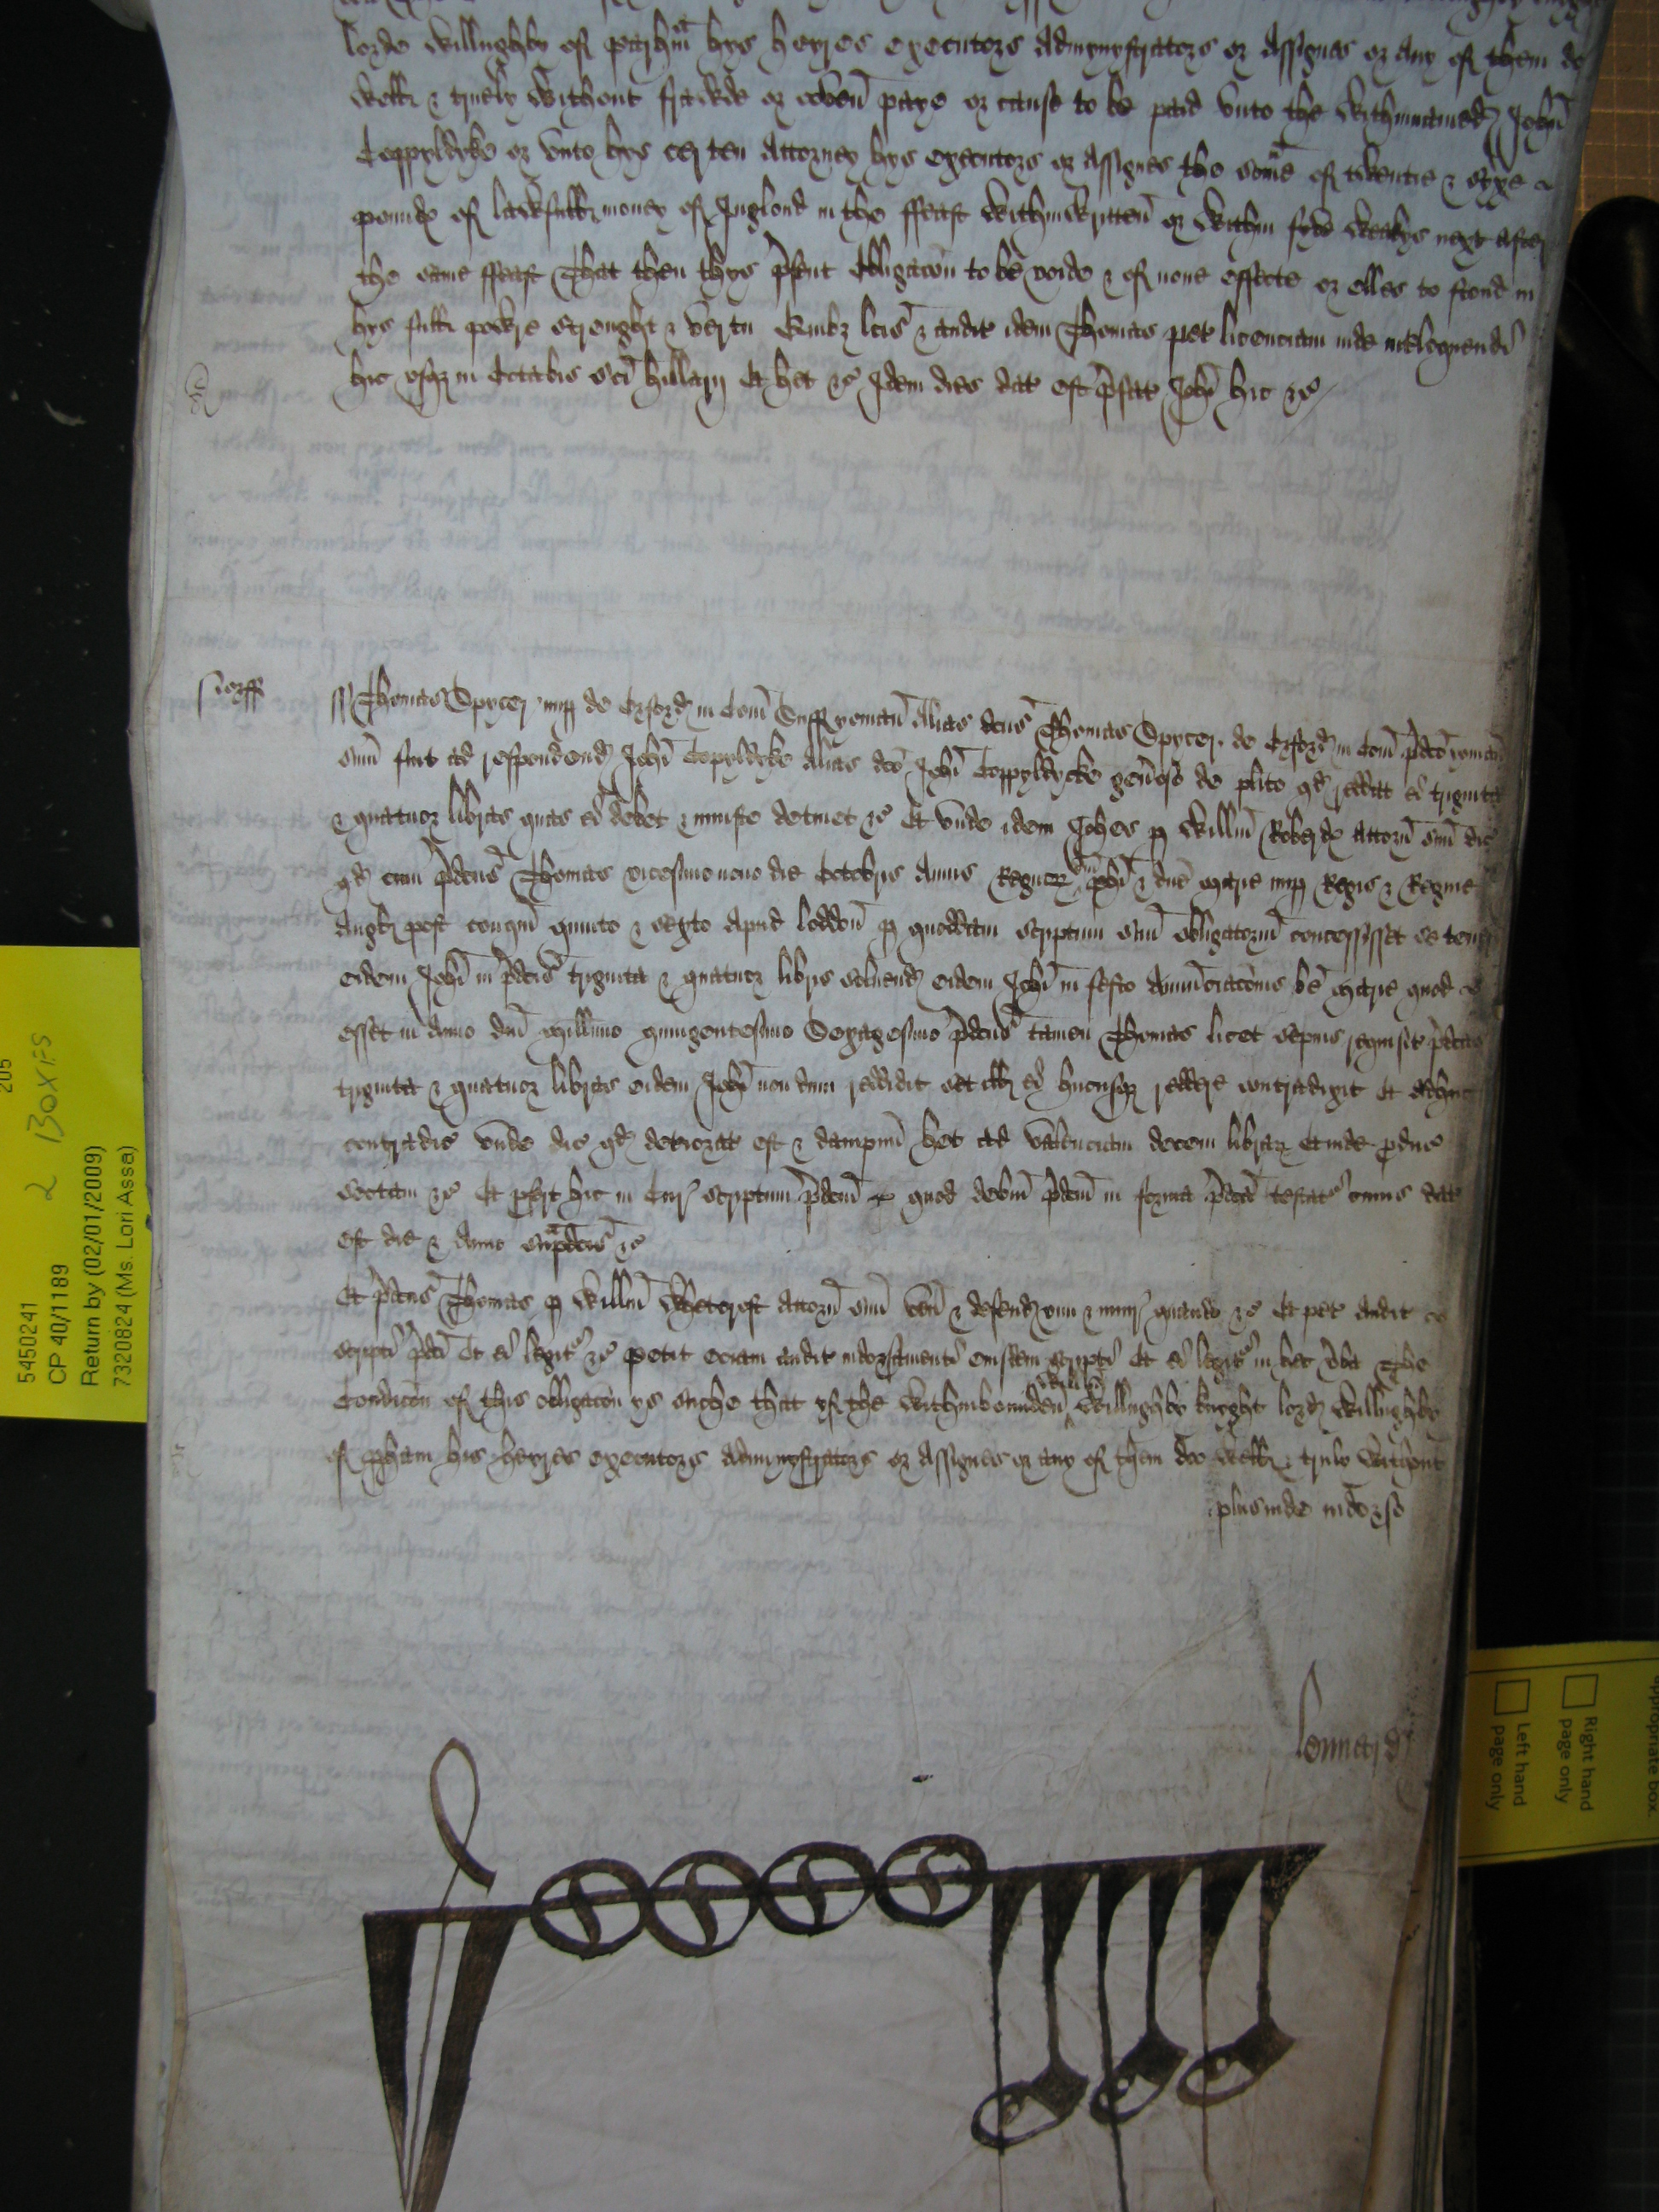 lorde Willughby of parhm̄ hys heyres executors admynystrators or assignes or any of them do
Well & truely Without frawde or coven paye or cause to be paid vnto the Withinnamed John
Coppyldyke or vnto hys certen Attorney hys executors or assignes the som̄e of twentie & syxe
pounds of lawfull money of Inglond in the ffeast Withinwritten or Within fyve Weekys next after
the same ffeast That then thys p̄sent obligacōn to be voide & of none effecte or elles to stond in
hys full powre strenght & vertu Quibz lc̄is & audit idem Thomas pet licenciam inde int̄loquendi
hic vsqz in Octabis sc̄i hillarij Et het &c Idem dies dat est p̄fat Joh̄i hic &c
Suff
Thomas Spycer nup de Orford in Com̄ Suff yoman Alias dc̄us Thomas Spycer de Orford in Com̄ p̄dc̄o yoman
sum̄ fuit ad respondend Joh̄i Copyldyke Alias dc̄o Joh̄i Coppyldycke gen̄oso de pl̄ito qd reddat ei triginta
& quatuor libras quas ei debet & iniuste detinet &c Et vnde idem Joh̄es p Will̄m Roberds attorn̄ suū dic
qd cum p̄dc̄us Thomas vicesimo nono die Octobris Annis Regnor dn̄i ph̄i & dn̄e Marie nup Regis & Regine
Angl post conqm̄ quinto & sexto apud loddon p quoddam scriptum suū obligatoriū concessisset se teneri
eidem Joh̄i in p̄dc̄is triginta & quatuor libris soluend eidem Joh̄i in festo Annūciacōnis bē Marie quod
esset in Anno dn̄i Mill̄imo quingentesimo Sexagesimo p̄dc̄us tamen Thomas licet sepius requisit p̄dc̄as
triginta & quatuor libras eidem Joh̄i nondum reddidit set ill ei hucusqz reddere contradixit et adhuc
contradic vnde dic qd deteriorat est & dampnū het ad valenciam decem librar Et inde pduc
sectam &c Et pfert hic in Cur scriptum p̄dc̄m quod debm̄ p̄dc̄m in forma p̄dc̄a testat cuius dat
est die & Anno sup̄dc̄is &c
Et p̄dc̄us Thomas p Will̄m Whetcroft attorn̄ suū ven̄ & defend vim & iniur quando &c Et pet audit
scripti p̄dc̄i Et ei legit &c petit eciam audit indorsamenti eiusdem scripti Et ei legit in hec v̄ba The
Condicōn of this obligacōn ys suche that yf the Withinbounden Will̄m Willughby knyght lord Willughby
of pham his heyres executors administrators or assignes or any of them doo Well & truly Without
plus inde in dorso
lonnard
5450241
CP 40/1189
Return by (02/01/2009)
7320824 (Ms. Lori Assa)
205
2 BOXES
appropriate box.
Right hand
page only
Left hand
page only